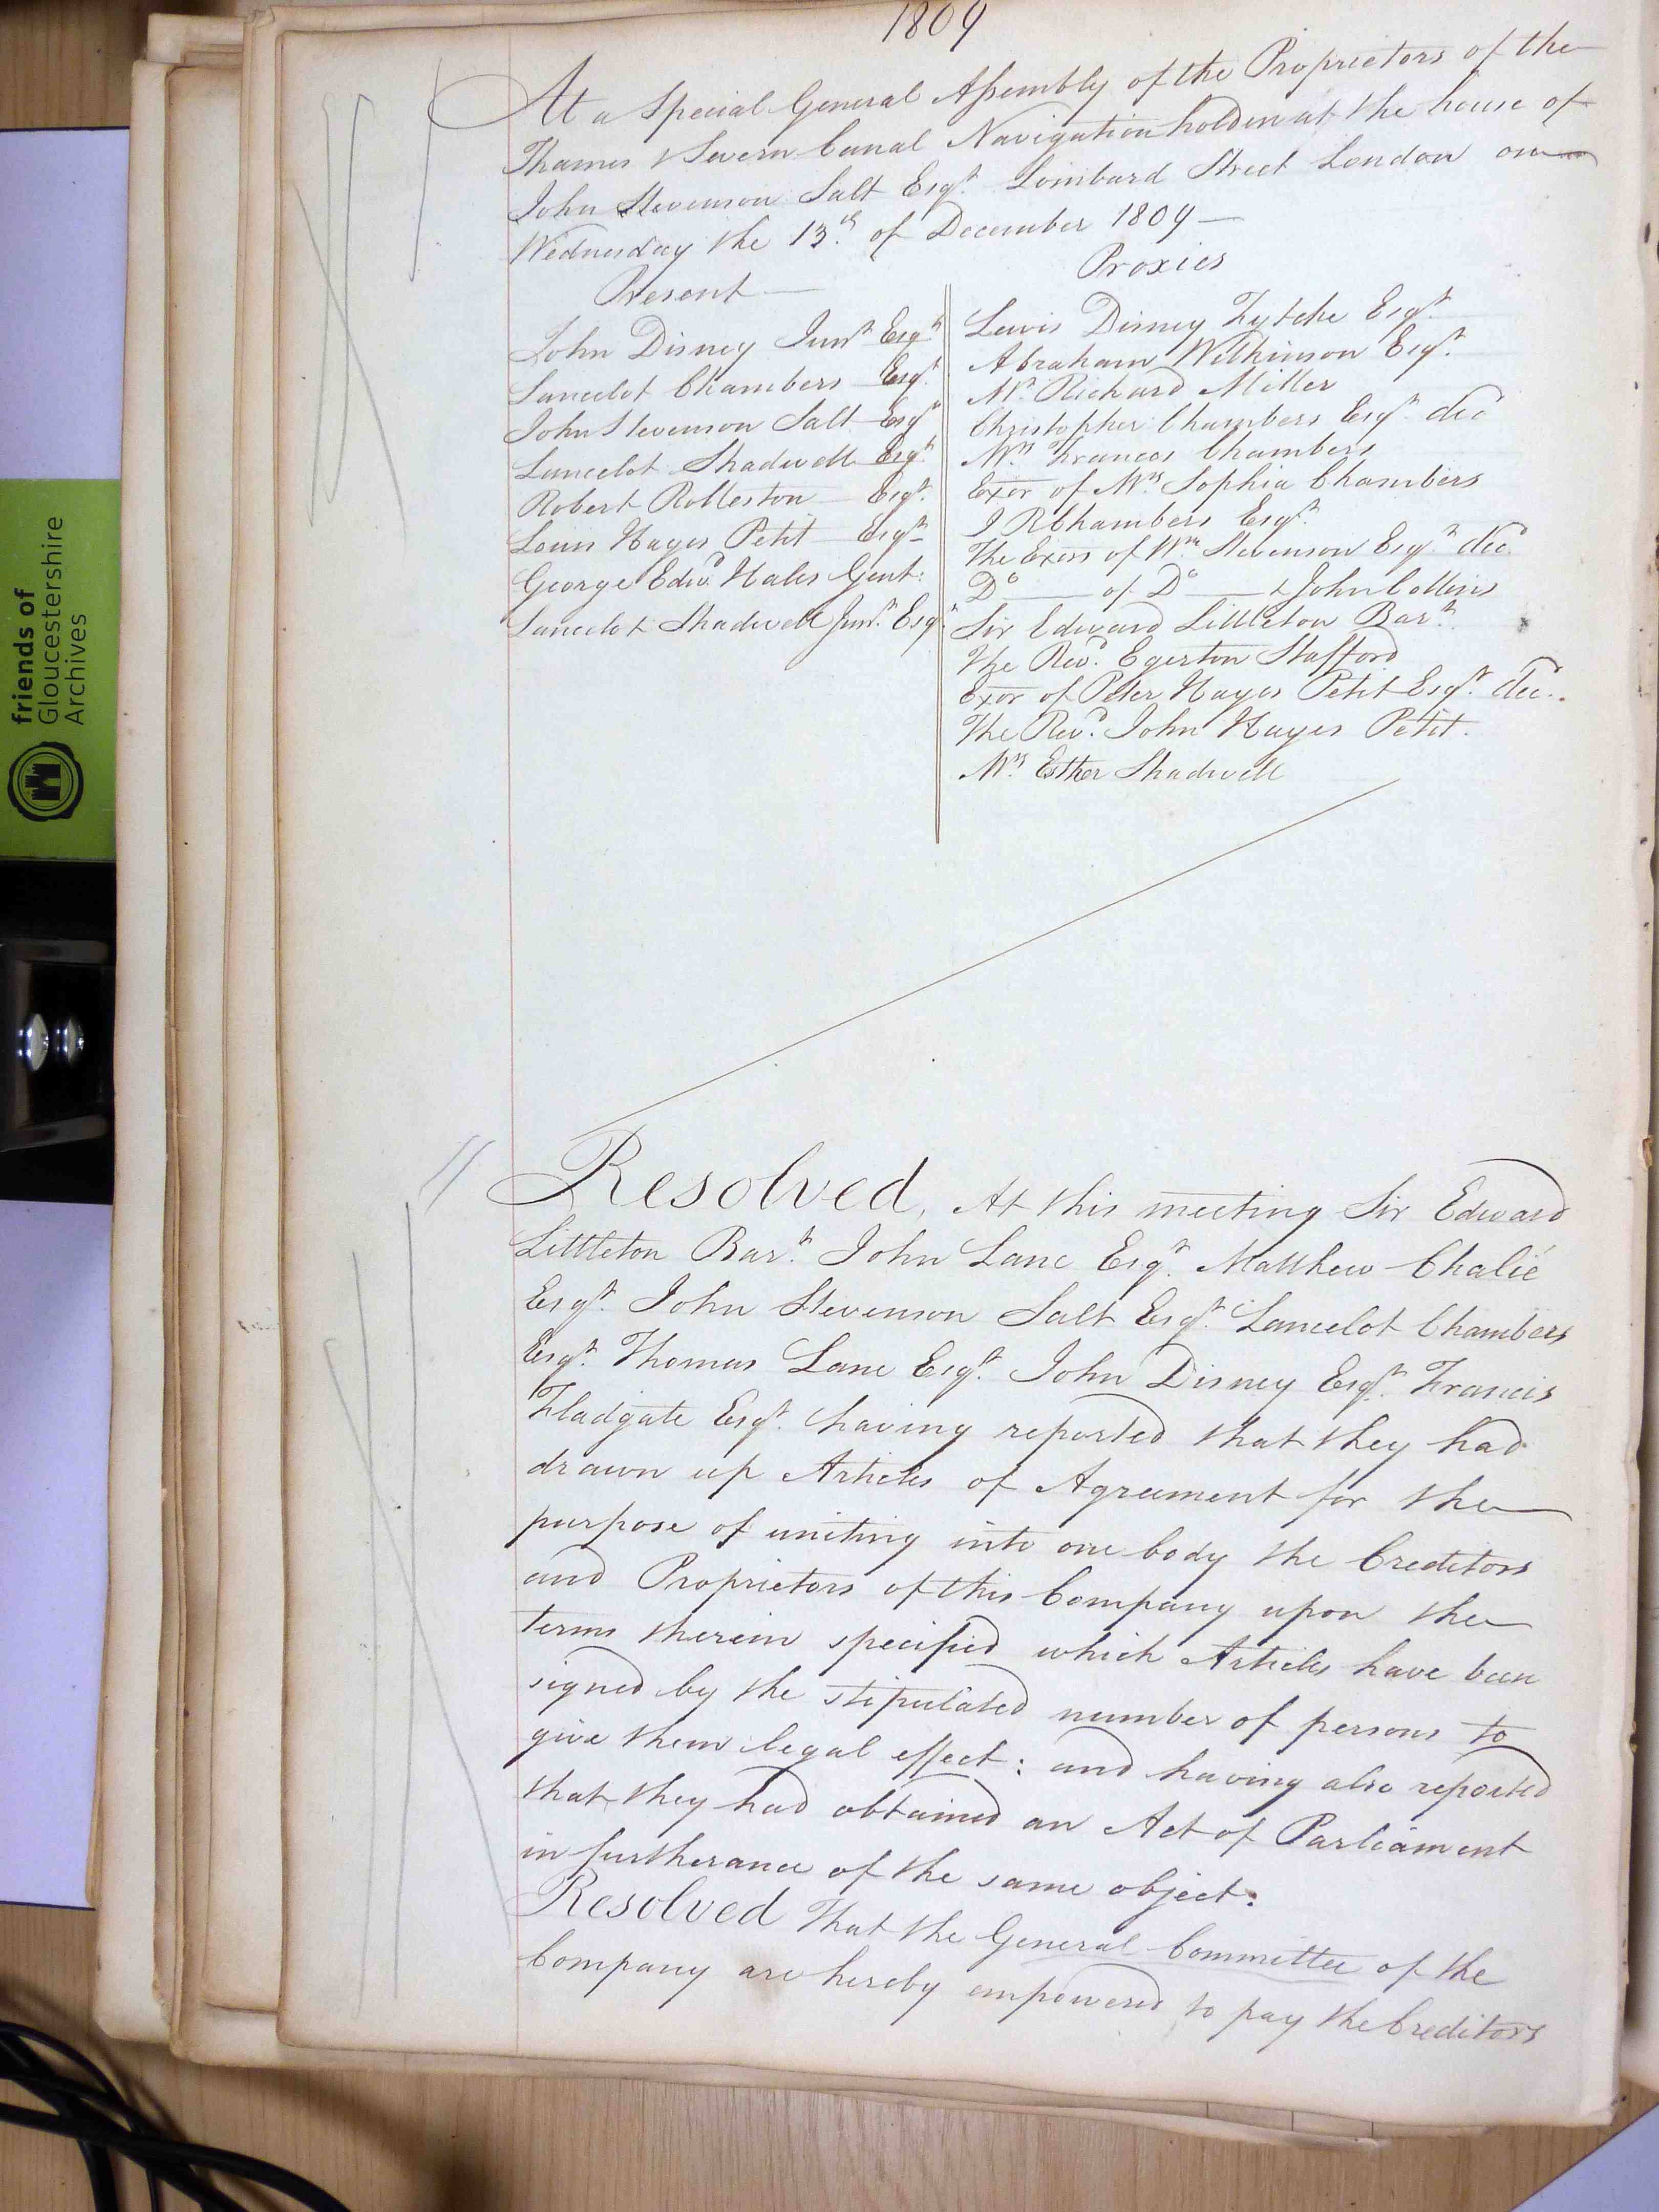 1809
At a Special General Assembly of the Proprietors of the
Thames & Severn Canal Navigation holden at the house of
John Stevenson Salt Esqr. Lombard Street London on
Wednesday the 13th of December 1809
Present
John Disney Junr Esqr
Lancelot Chambers Esqr.
John Stevenson Salt Esqr
Lancelot Shadwell Esqr.
Robert Rolleston Esqr.
Louis Hayes Petit Esqr
George Edwd. Hales Gent:
Lancelot Shadwell Junr. Esqr
Proxies
Lewis Disney Fytche Esqr.
Abraham Wilkinson Esqr.
Mr. Richard Miller
Christopher Chambers Esqr. decd
Mrs Frances Chambers
Exor of Mrs Sophia Chambers
J R Chambers Esqr.
The Exors of Wm Stevenson Esqr. decd.
Do of Do & John Collins
Sir Edward Littleton Bart.
The Revd. Egerton Stafford
Exor of Peter Hayes Petit Esqr. decd.
The Revd. John Hayes Petit.
Mrs Esther Shadwell
Resolved, At this meeting Sir Edward
Littleton Bart. John Lane Esqr. Matthew Chalié
Esqr. John Stevenson Salt Esqr. Lancelot Chambers
Esqr. Thomas Lane Esqr. John Disney Esqr. Francis
Fladgate Esqr. having reported that they had
drawn up Articles of Agreement for the
purpose of uniting into one body the Creditors
and Proprietors of this Company upon the
terms therein specified which Articles have been
signed by the stipulated number of persons to
give them legal effect: and having also reported
that they had obtained an Act of Parliament
in furtherance of the same object:
Resolved That the General Committee of the
Company are hereby empowered to pay the Creditors
friends of
Gloucestershire
Archives